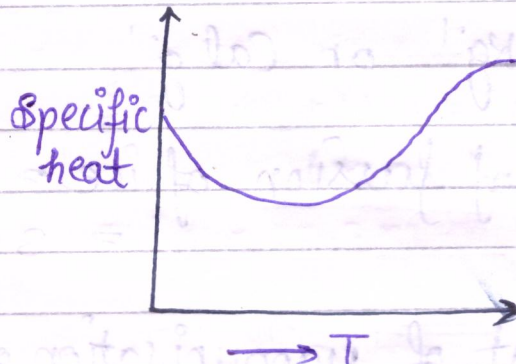 Specific
heat
⟶ T